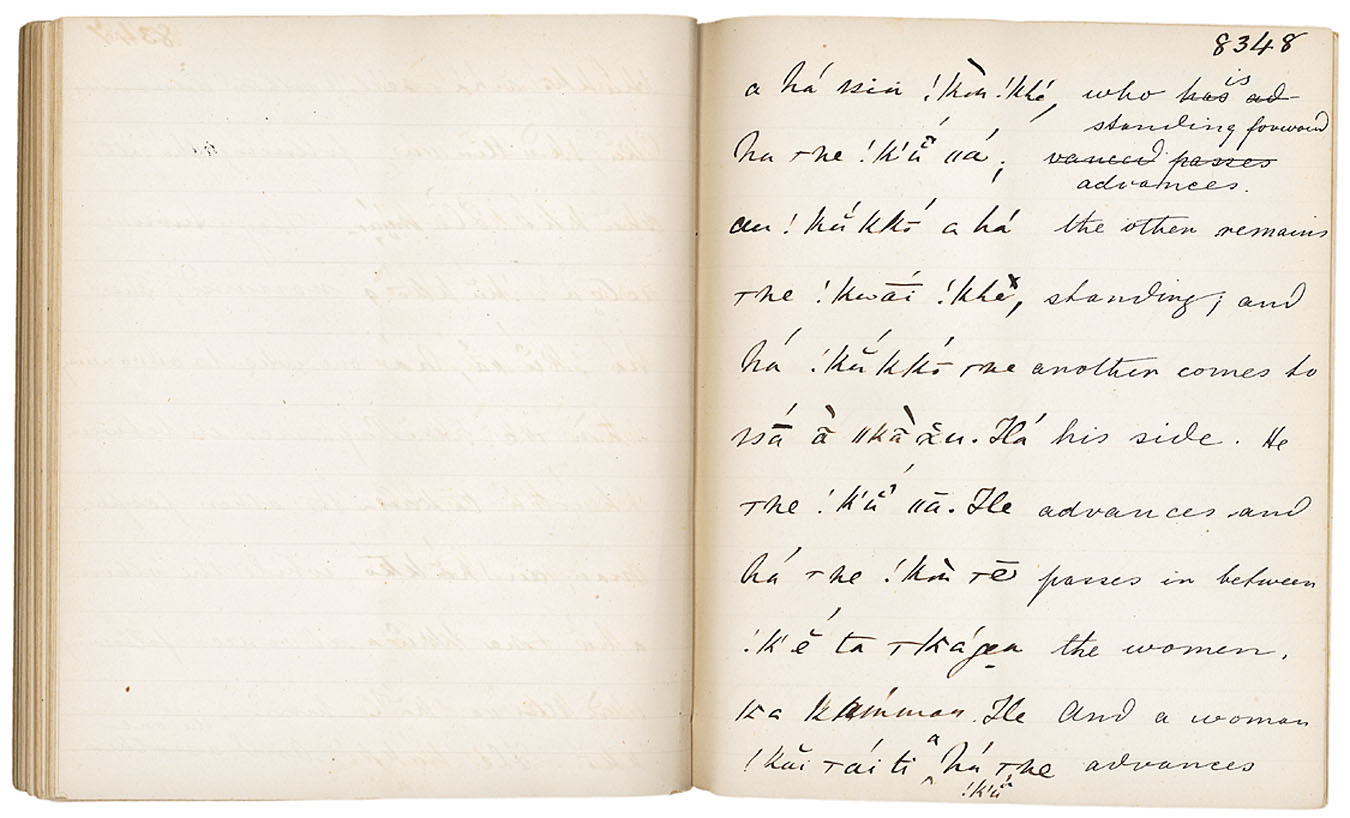 8348
a há ssin !kòn !khé, who ~~has~~ is ~~ad-~~
standing forward
ha ⊤ne !k'ŭ́ ǁá; ~~vanced passes~~
advances.
au !kŭ́kkō a há the other remains
⊤ne !kwā́i !khḗ, standing; and
há !kŭ́kkō ⊤ne another comes to
ssā́ ā̀ ǁkā̀ xu. Há his side. He
⊤ne !k'ŭ́ ǁā. He advances and
há ⊤ne !kòn ⊤ē passes in between
!k'ĕ́ ta ⊤kágen the women.
ka kǎmman. He And a woman
!kŭi ⊤áiti a há ⊤ne advances
!k'ŭ́